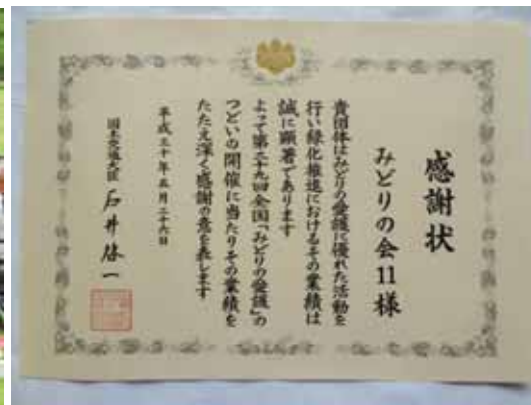 感謝状
みどりの会11様
貴団体はみどりの愛護に優れた活動を
行い緑化推進におけるその業績は
誠に顕著であります
よって第二十九回全国「みどりの愛護」の
つどいの開催に当たりその業績を
たたえ深く感謝の意を表します
平成三十年五月二十六日
国土交通大臣 石井啓一